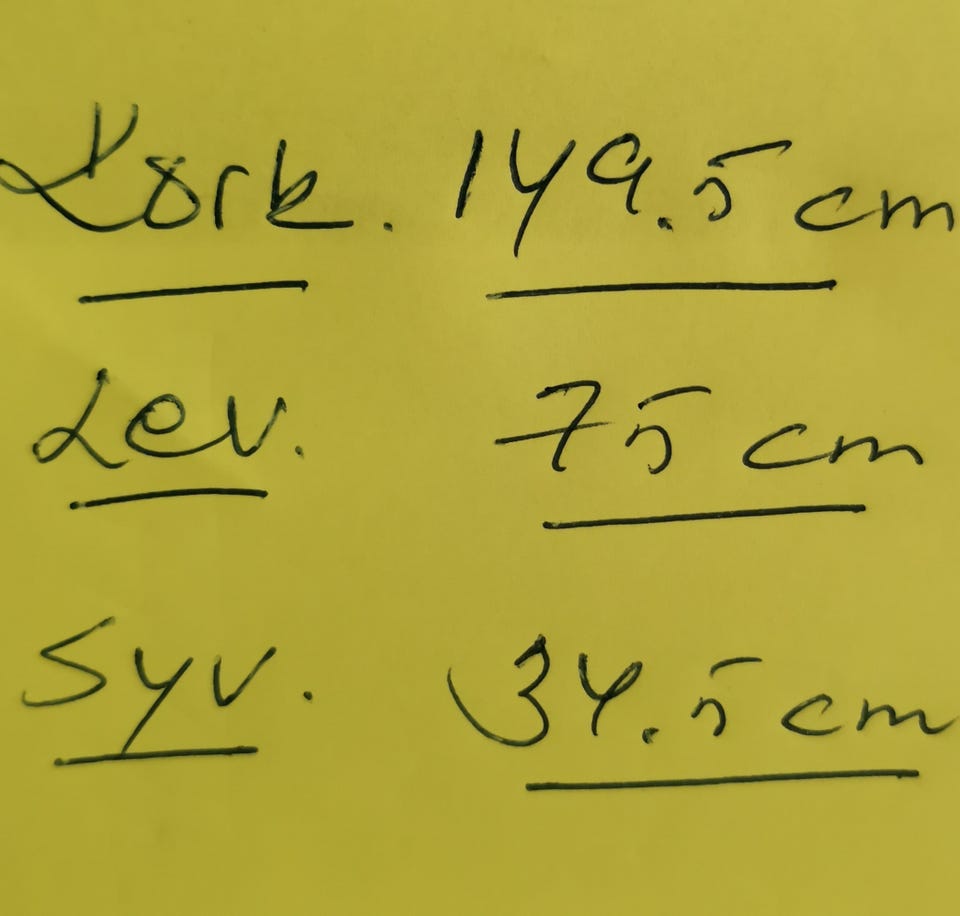 Körk. 149.5 cm
Lev. 75 cm
Syv. 34.5 cm